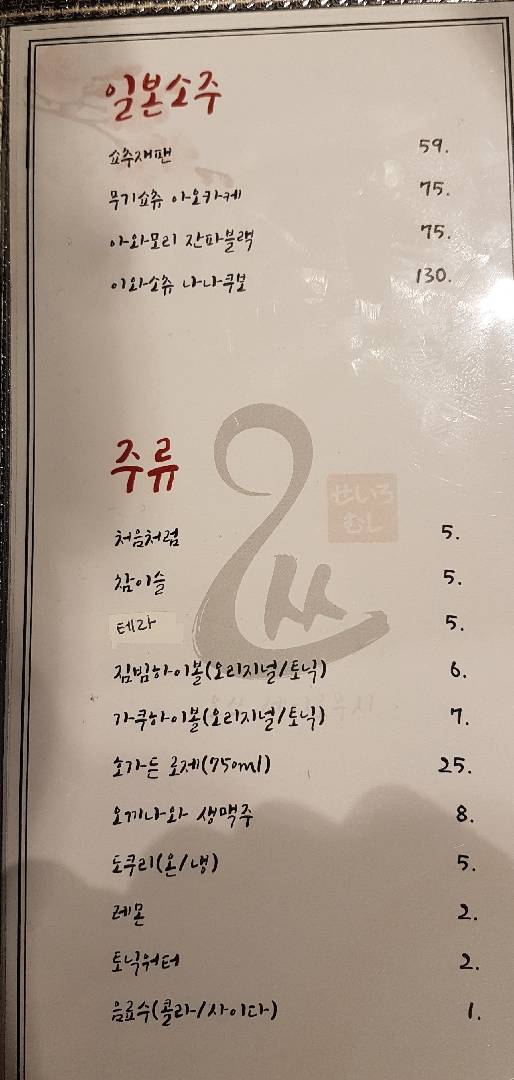 일본소주
쇼츄재팬 59.
무기쇼츄 아오카케 75.
아와모리 잔파블랙 75.
이와소츄 나나쿠보 130.
주류
せいろ
むし
처음처럼 5.
참이슬 5.
테라 5.
짐빔하이볼(오리지널/토닉) 6.
가쿠하이볼(오리지널/토닉) 7.
호가든 로제(750ml) 25.
오끼나와 생맥주 8.
도쿠리(온/냉) 5.
레몬 2.
토닉워터 2.
음료수(콜라/사이다) 1.